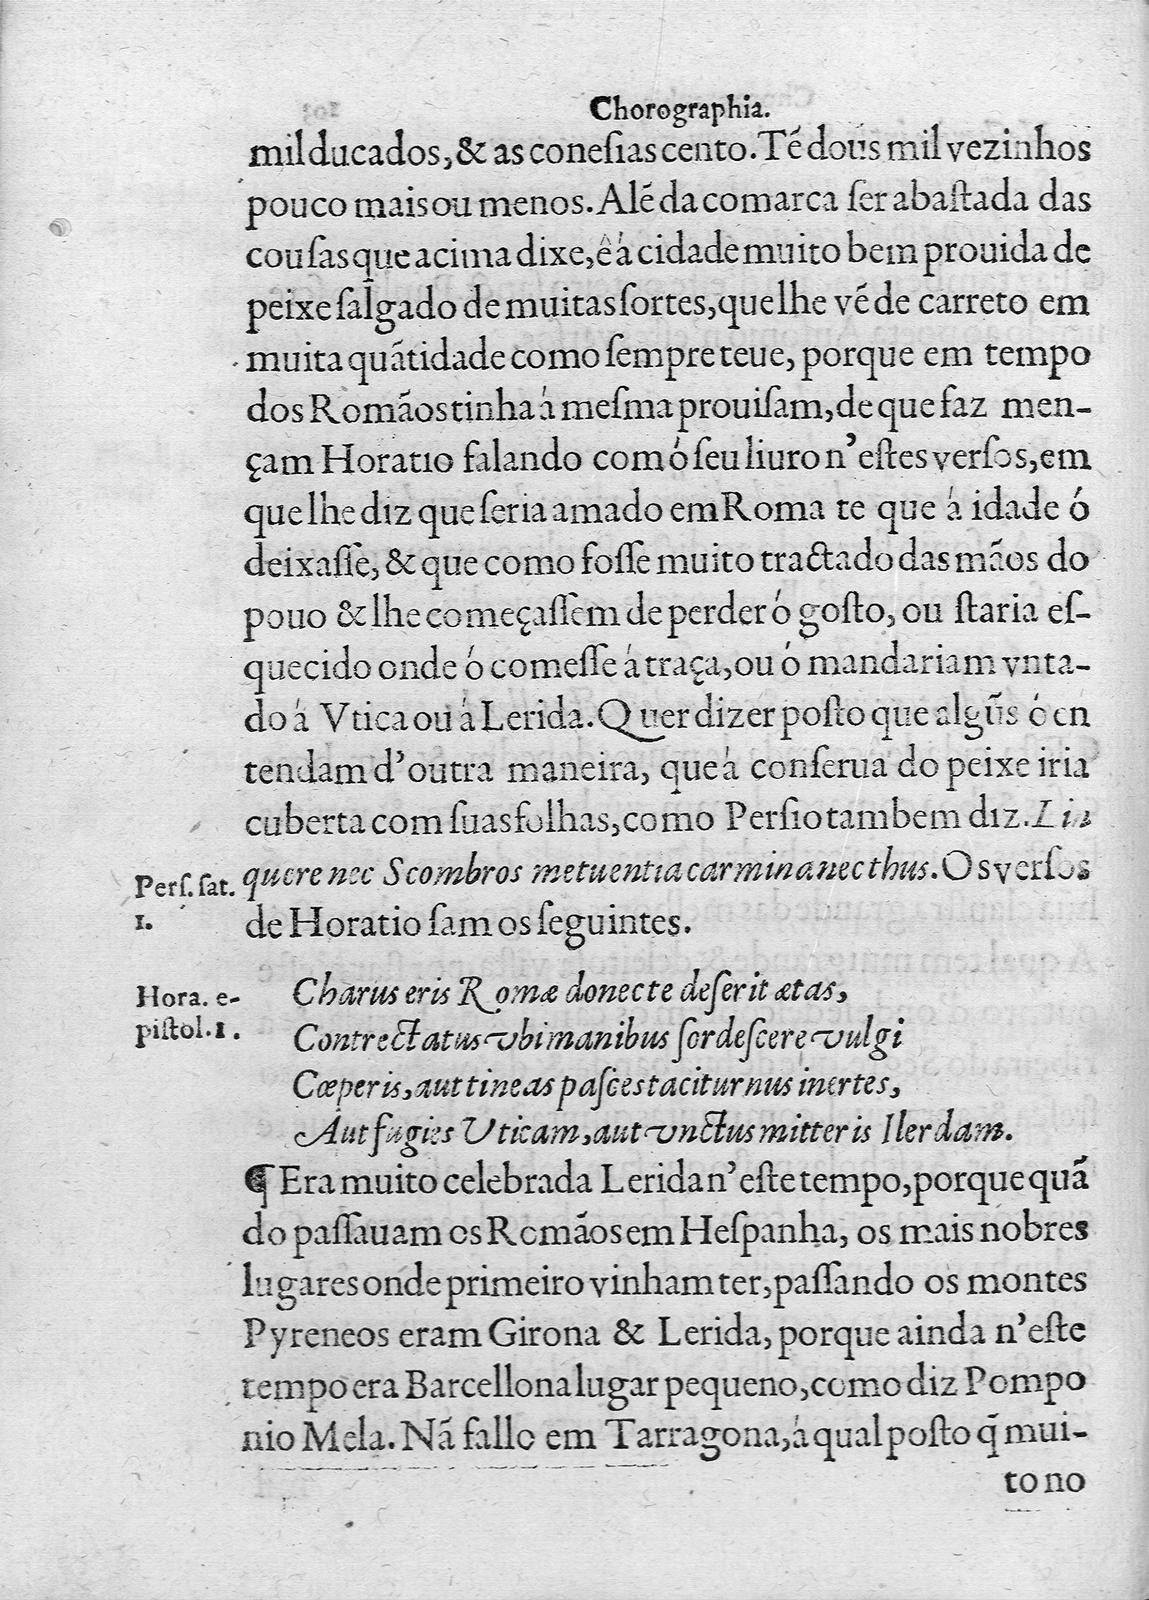 Chorographia.
mil ducados, & as conesias cento. Tẽ dous mil vezinhos
pouco mais ou menos. Alẽ da comarca ſer abaſtada das
couſas que acima dixe, ê á cidade muito bem prouida de
peixe ſalgado de muitas ſortes, que lhe vẽ de carreto em
muita quãtidade como ſempre teue, porque em tempo
dos Romãos tinha á meſma prouiſam, de que faz men-
çam Horatio falando com ó ſeu liuro n'eſtes verſos, em
que lhe diz que ſeria amado em Roma te que á idade ó
deixaſſe, & que como foſſe muito tractado das mãos do
pouo & lhe começaſſem de perder ó goſto, ou ſtaria eſ-
quecido onde ó comeſſe á traça, ou ó mandariam vnta-
do á Vtica ou á Lerida. Quer dizer poſto que algũs ó en
tendam d'outra maneira, que á conſerua do peixe iria
cuberta com ſuas folhas, como Perſio tambem diz. Lin
Perſ. ſat.
1.
quere nec Scombros metuentia carmina nec thus. Os verſos
de Horatio ſam os ſeguintes.
Hora. e-
piſtol. 1.
Charus eris Romæ donec te deſerit ætas,
Contrectatus vbi manibus ſordeſcere vulgi
Cœperis, aut tineas paſces taciturnus inertes,
Aut fugies Vticam, aut vnctus mitteris Ilerdam.
¶ Era muito celebrada Lerida n'eſte tempo, porque quã
do paſſauam os Romãos em Heſpanha, os mais nobres
lugares onde primeiro vinham ter, paſſando os montes
Pyreneos eram Girona & Lerida, porque ainda n'eſte
tempo era Barcellona lugar pequeno, como diz Pompo
nio Mela. Nã fallo em Tarragona, á qual poſto q̃ mui-
to no